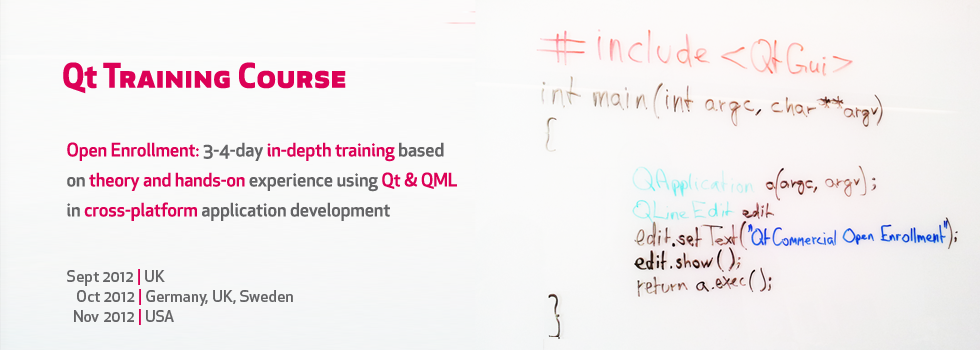 Qt Training Course
Open Enrollment: 3-4-day in-depth training based
on theory and hands-on experience using Qt & QML
in cross-platform application development
Sept 2012 | UK
Oct 2012 | Germany, UK, Sweden
Nov 2012 | USA
#include <QtGui>
int main(int argc, char**argv)
{
QApplication a(argc, argv);
QLineEdit edit
edit.setText("Qt Commercial Open Enrollment");
edit.show();
return a.exec();
}